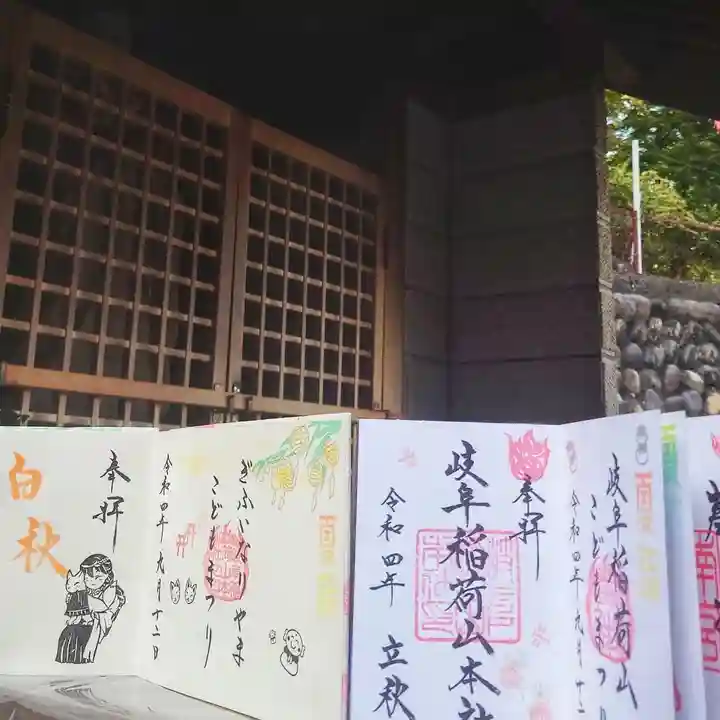 白秋
奉拝
令和四年九月十二日
ぎふいなりやま
こどもまつり
奉拝
岐阜稲荷山本社
令和四年 立秋
岐阜稲荷山
こどもまつり
令和四年九月十二